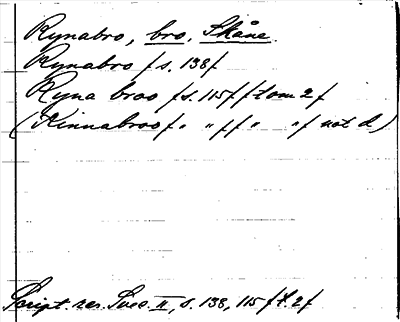 Rynabro, bro, Skåne.
Rynabro f s. 138 f
Ryna broo f s. 115 f f tom 2 f
(Kinnabroo f " " f f " " f not d)
Script. rer. Svec. II, s. 138, 115 f t. 2 f